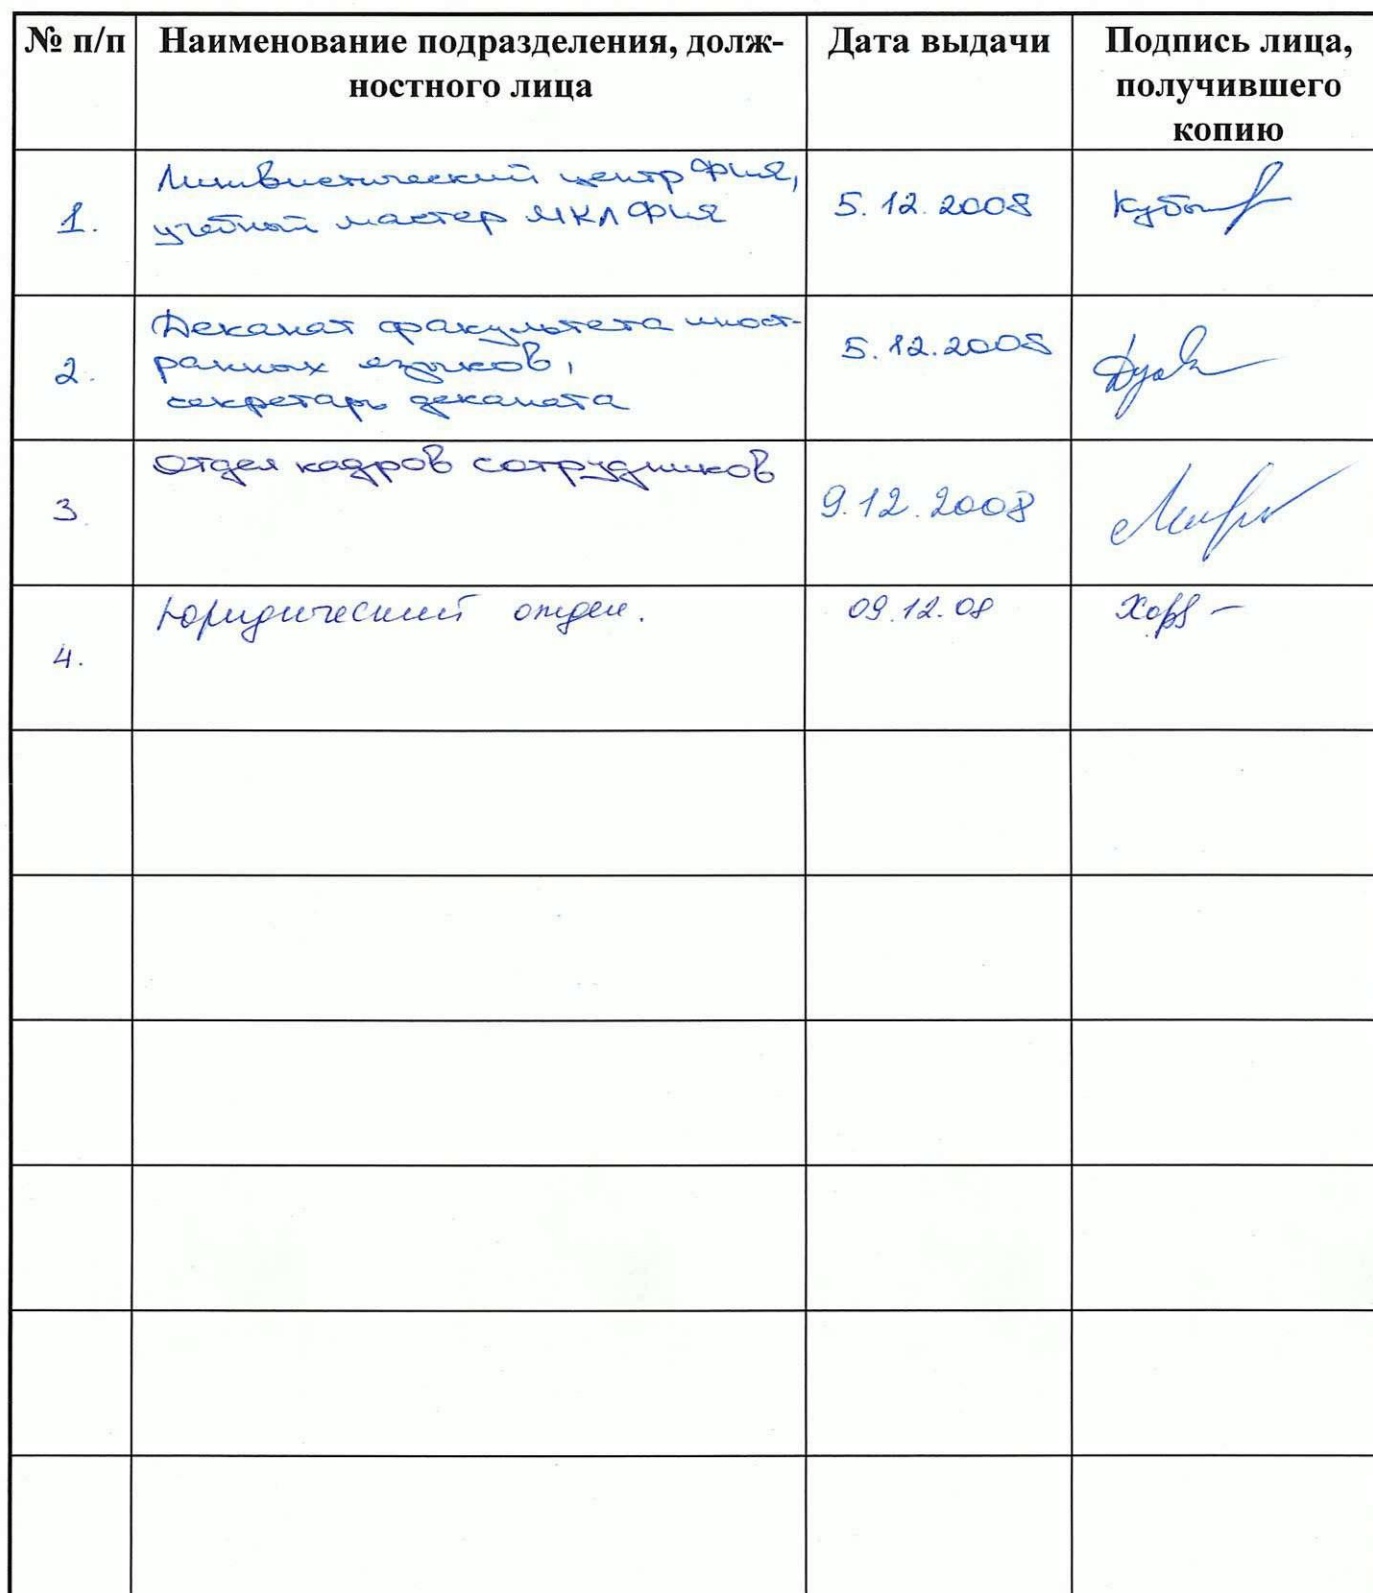 № п/п
Наименование подразделения, долж-
ностного лица
Дата выдачи
Подпись лица,
получившего
копию
1.
Лингвистический центр ФИЯ,
учебный мастер МКЛ ФИЯ
5.12.2008
2.
Деканат факультета иност-
ранных языков,
секретарь деканата
5.12.2008
3.
Отдел кадров сотрудников
9.12.2008
4.
Юридический отдел.
09.12.08